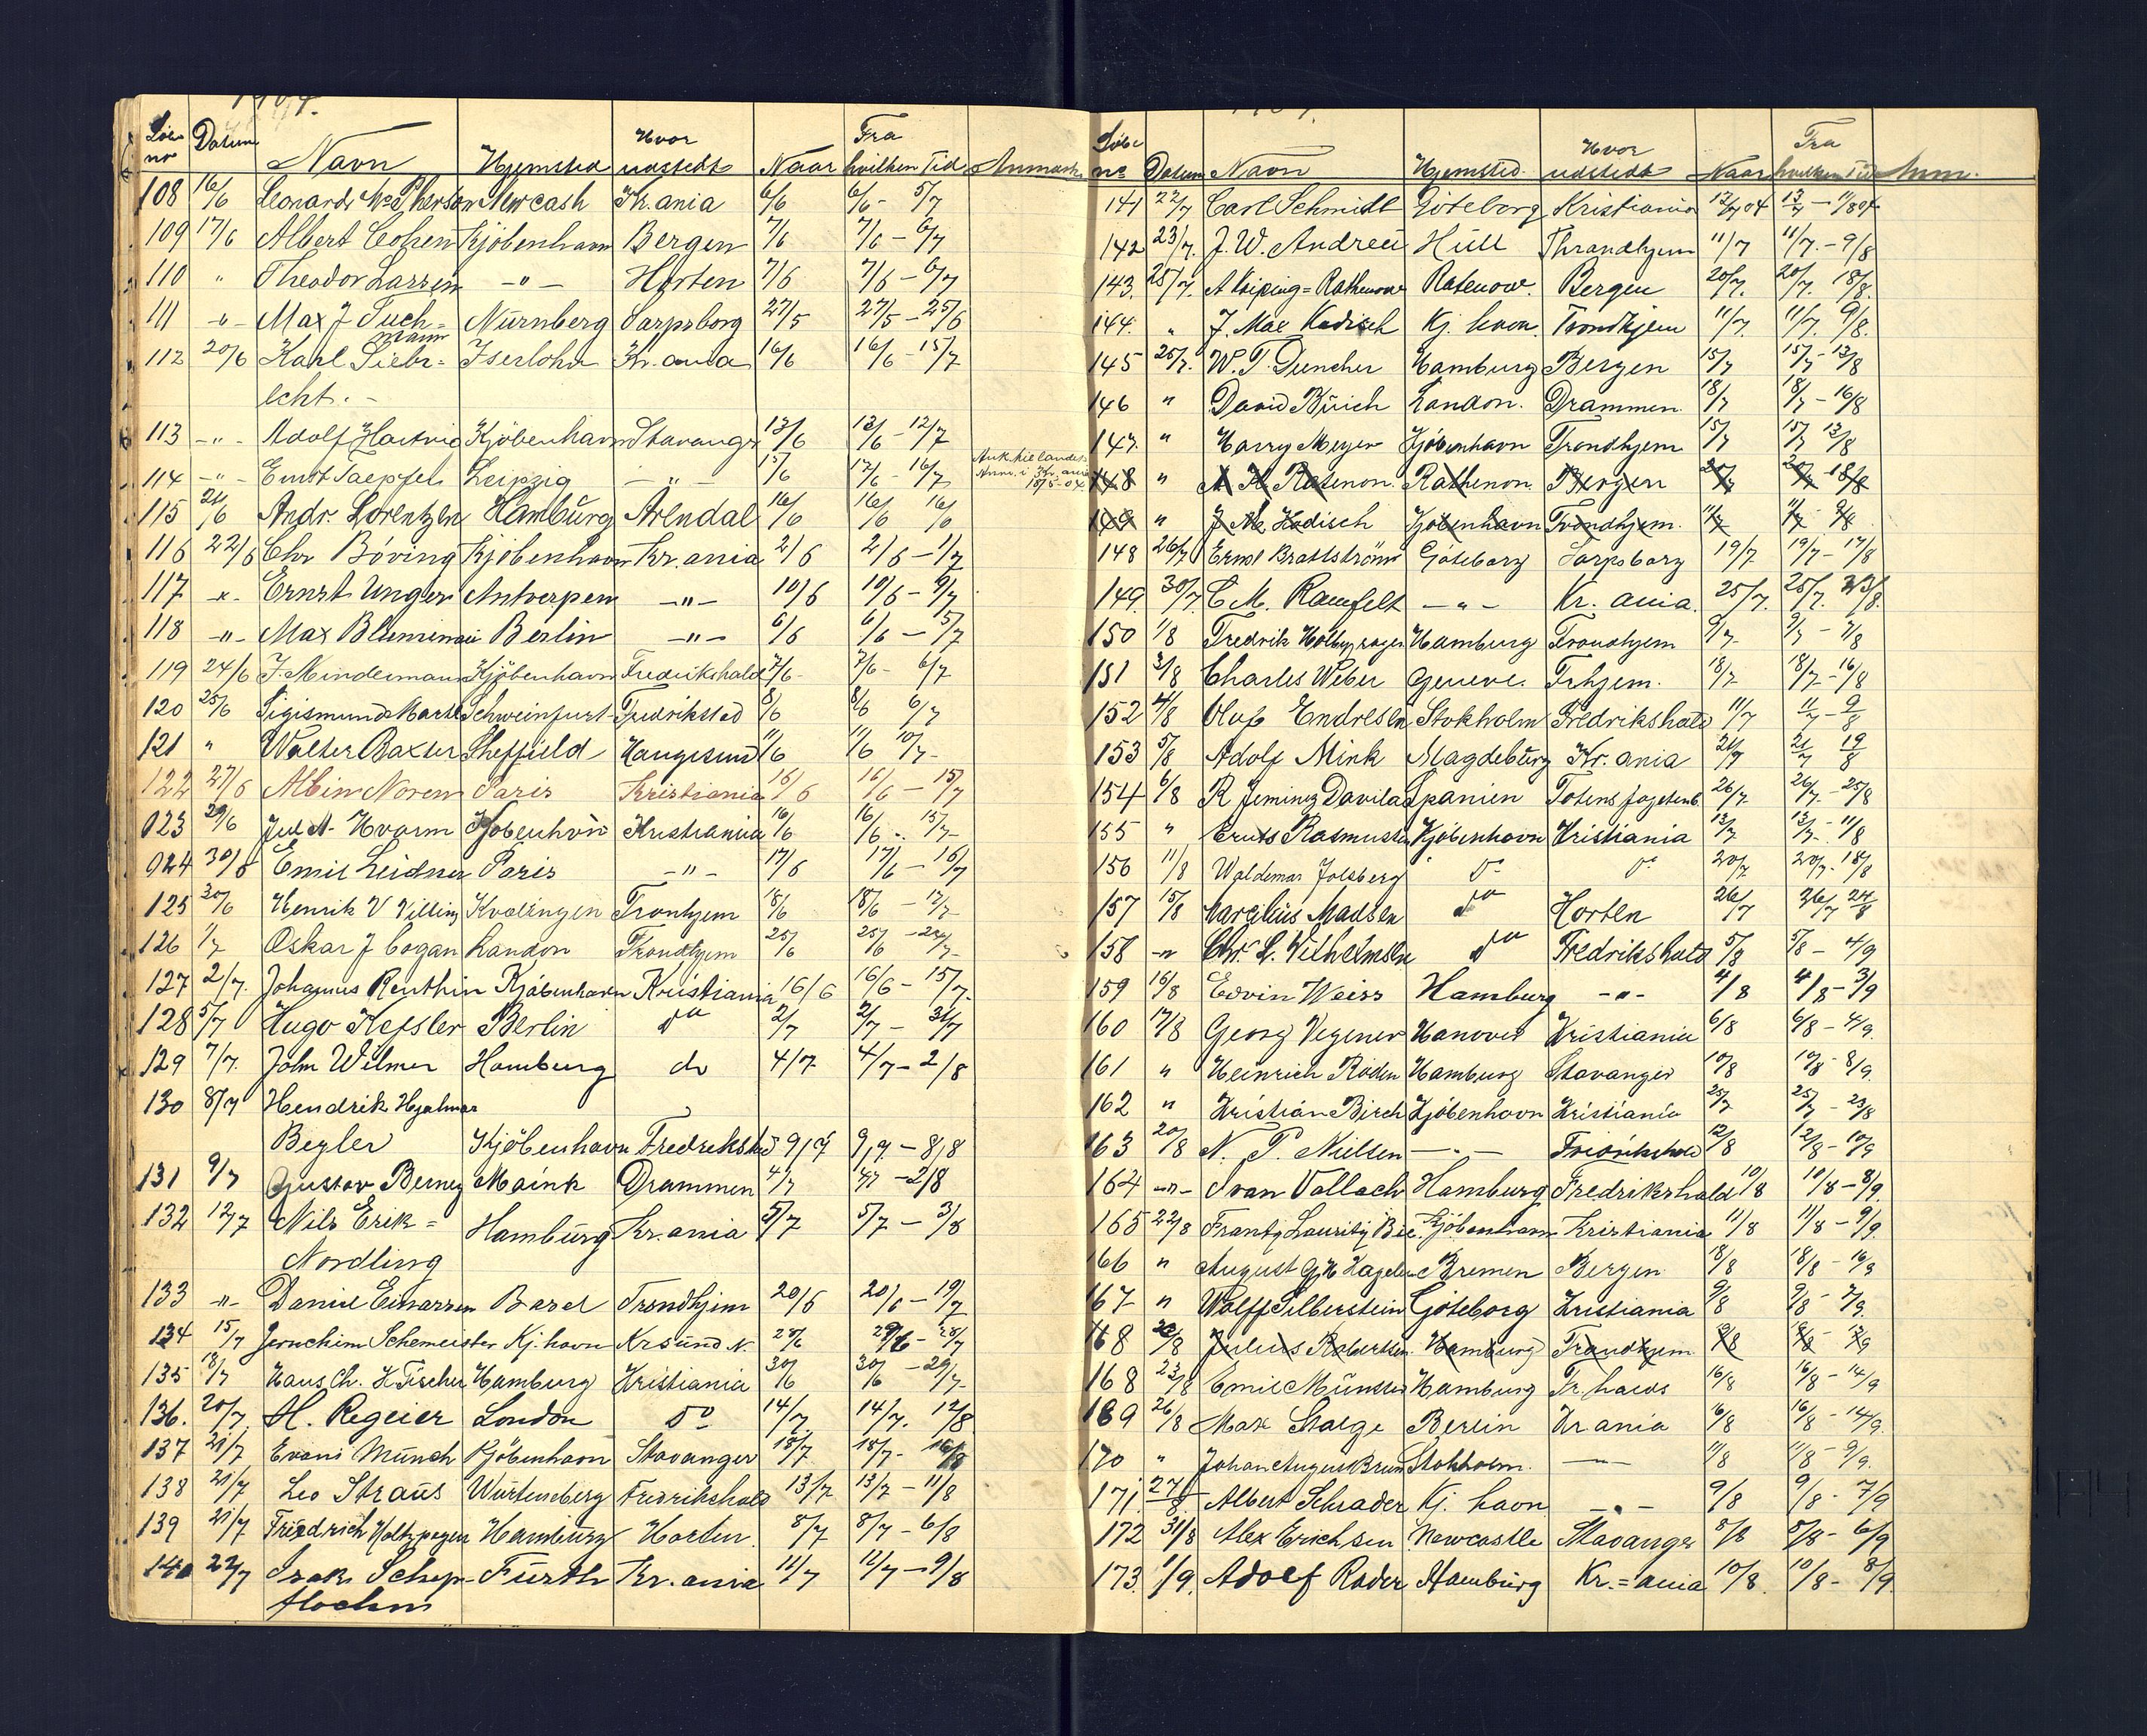 1904.
Løbe no Datum Navn Hjemsted Hvor udstedt Naar Fra hvilken Tid Anmærk.
108 16/6 Leonard McPherson Newcash Kr.ania 6/6 6/6 - 5/7
109 17/6 Albert Cohen Kjöbenhavn Bergen 7/6 7/6 - 6/7
110 " Theodor Larsen - " - Horten 7/6 7/6 - 6/7
111 - " - Max J Tuch= Nürnberg Sarpsborg 27/5 27/5 - 25/6
mann
112 20/6 Karl Siebr- Iserlohn Kr.ania 16/6 16/6 - 15/7
echt. -
113 - " - Adolf Hartvig Kjöbenhavn Stavanger 13/6 13/6 - 12/7
114 - " - Ernst Taepfel Leipzig - " - 17/6 17/6 - 16/7 Ank. til landet
Anm. i Kr.ania
115 21/6 Andr. Lorentzen Hamburg Arendal 16/6 16/6 16/6
116 22/6 Chr Böving Kjöbenhavn Kr.ania 2/6 2/6 - 1/7
117 - " - Ernst Unger Antverpen - " - 10/6 10/6 - 9/7
118 - " - Max Blumenau Berlin - " - 6/6 6/6 - 5/7
119 24/6 J. Mindermann Kjöbenhavn Fredrikshald 7/6 7/6 - 6/7
120 25/6 Sigismund Schweinfurt Fredrikstad 8/6 8/6 6/7
121 " Walter Baxter Sheffield Haugesund 11/6 11/6 10/7
122 27/6 Albin Noren Paris Kristiania 16/6 16/6 - 15/7
123 29/6 Jul A. Hvarm Kjöbenhvn Kristiania 16/6 16/6 - 15/7
124 30/6 Emil Leidner Paris - " - 17/6 17/6 - 16/7
125 30/6 Henrik V Villing Tronhjem 18/6 18/6 - 17/7
126 1/7 Oskar J Cogan London Trondhjem 25/6 25/6 - 24/7
127 2/7. Johannes Renthin Kjöbenhavn Kristiania 16/6 16/6 - 15/7.
128 5/7 Hugo Kessler Berlin do 2/7 2/7 - 31/7
129 7/7. John Wilmer Hamburg do 4/7 4/7 - 2/8
130 8/7 Hendrik Hjalmar
Begler Kjöbenhavn Fredrikstad 9/7 9/7 - 8/8
131 9/7 Gustav Berney Maink Drammen 4/7 4/7 - 2/8
132 12/7 Nils Erik= Hamburg Kr.ania 5/7 5/7 - 3/8
Nordling
133 - " - Daniel Einarsen Basel Trondhjem 20/6 20/6 - 19/7
134 15/7 Jeruchim Schemeister Kj.havn Krsund N. 29/6 29/6 - 28/7
135 18/7 Hans Ch. H Fischer Hamburg Kristiania 30/6 30/6 - 29/7
136. 20/7 H. Regeier London do 14/7 14/7. 12/8
137 21/7 Evans Münch Kjöbenhavn Stavanger 18/7 18/7 - 16/8
138 21/7 Leo Straus Würtemberg Fredrikshald 13/7 13/7 - 11/8
139 21/7 Friedrich Holtzpegen Hamburg Horten 8/7 8/7 - 6/8
140 22/7 Isak Schep- Fürth Kr.ania 11/7 11/7 - 9/8
flochen
1904.
Løbe no Datum Navn Hjemsted Hvor udstedt Naar Fra hvilken Tid Anm.
141 22/7 Carl Schmidt Göteborg Kristiania 13/7 04 13/7 - 11/8 04
142 23/7. J. W. Andreu Hull Thrandhjem 11/7 11/7. - 9/8
143. 25/7. A Keiping=Rathenow Ratenow. Bergen 20/7. 20/7. 18/8.
144. " J. Max Kadisch Kj. havn. Trondhjem 11/7. 11/7 9/8.
145 25/7. W. T. Duncher Hamburg Bergen 15/7 15/7 - 13/8
146 " David Bürich London. Drammen. 18/7 18/7 - 16/8
147. " Harry Meyer Kjöbenhavn Trondhjem 15/7 15/7 13/8
148 " A K Ratenon. Rathenon Bergen 20/7 20/7 18/8
149 " J M Kadisch Kjöbenhavn Trondhjem. 11/7 11/7 9/8
148 26/7 Ernst Brattström Göteborg Sarpsborg 19/7 19/7 - 17/8
149. 30/7 C. M. Ramfelt - " - Kr. ania. 25/7. 25/7. 23/8.
150 1/8 Fredrik Holtzpagen Hamburg Trondhjem 9/7 9/7 - 7/8
151 3/8 Charles Weber Geneve. Trhjem. 18/7 18/7 - 16/8
152 4/8 Oluf Endresen Stokholm Fredrikshald 11/7 11/7 - 9/8
153 5/8 Adolf Mink Magdeburg Kr. ania 21/7 21/7 19/8
154 6/8 R Jeminez Davila Spanien Totens fogderi 26/7. 26/7. - 25/8
155 " Rasmussen Kjöbenhavn Kristiania 13/7 13/7 - 11/8
156 11/8 Waldemar Jolsberg do do 20/7 20/7 - 18/8
157 15/8 Marcilius Madsen do Horten 26/7 26/7 24/8
158 - " Chr. L. Vilhelmsen do Fredrikshald 5/8 5/8 - 4/9
159 16/8 Edvin Weiss Hamburg - " - 4/8 4/8 - 3/9
160 17/8 Georg Vegener Hanover Kristiania 6/8 6/8 - 4/9.
161 " Heinrich Röden Hamburg Stavanger 10/8 10/8 - 8/9.
162 " Kristian Birch Kjöbenhavn Kristiania 25/7 25/7 - 23/8
163 20/8 N. P. Nielsen - " - Fredrikshald 12/8 12/8 - 10/9
164 - " - Ivan Vallach Hamburg Fredrikshald 10/8 10/8 - 8/9.
165 22/8 Frantz Lauritz Bie. Kjöbenhavn Kristiania 11/8 11/8 - 9/9.
166 " August G H Hagelen Bremen Bergen 18/8 18/8 - 16/9
167 " Wolff Silberstein Göteborg Kristiania 9/8 9/8 - 7/9.
168 Julius Robertsen. Hamburg Trondhjem 9/8
168 23/8 Emil Münster Hamburg Fr. halds 16/8 16/8 - 14/9
169 26/8 Max Salge Berlin Kr ania 16/8 16/8 - 14/9.
170 " Johan August Brun Stokholm. - " - 11/8 11/8 - 9/9.
171. 27/8 Albert Schrader Kj. havn - " - 9/8 9/8 - 7/9
172 31/8 Alex Erichsen Newcastle Stavanger 8/8 8/8 - 6/9
173. 1/9. Adolf Rader Hamburg Kr.=ania 10/8. 10/8 - 8/9.